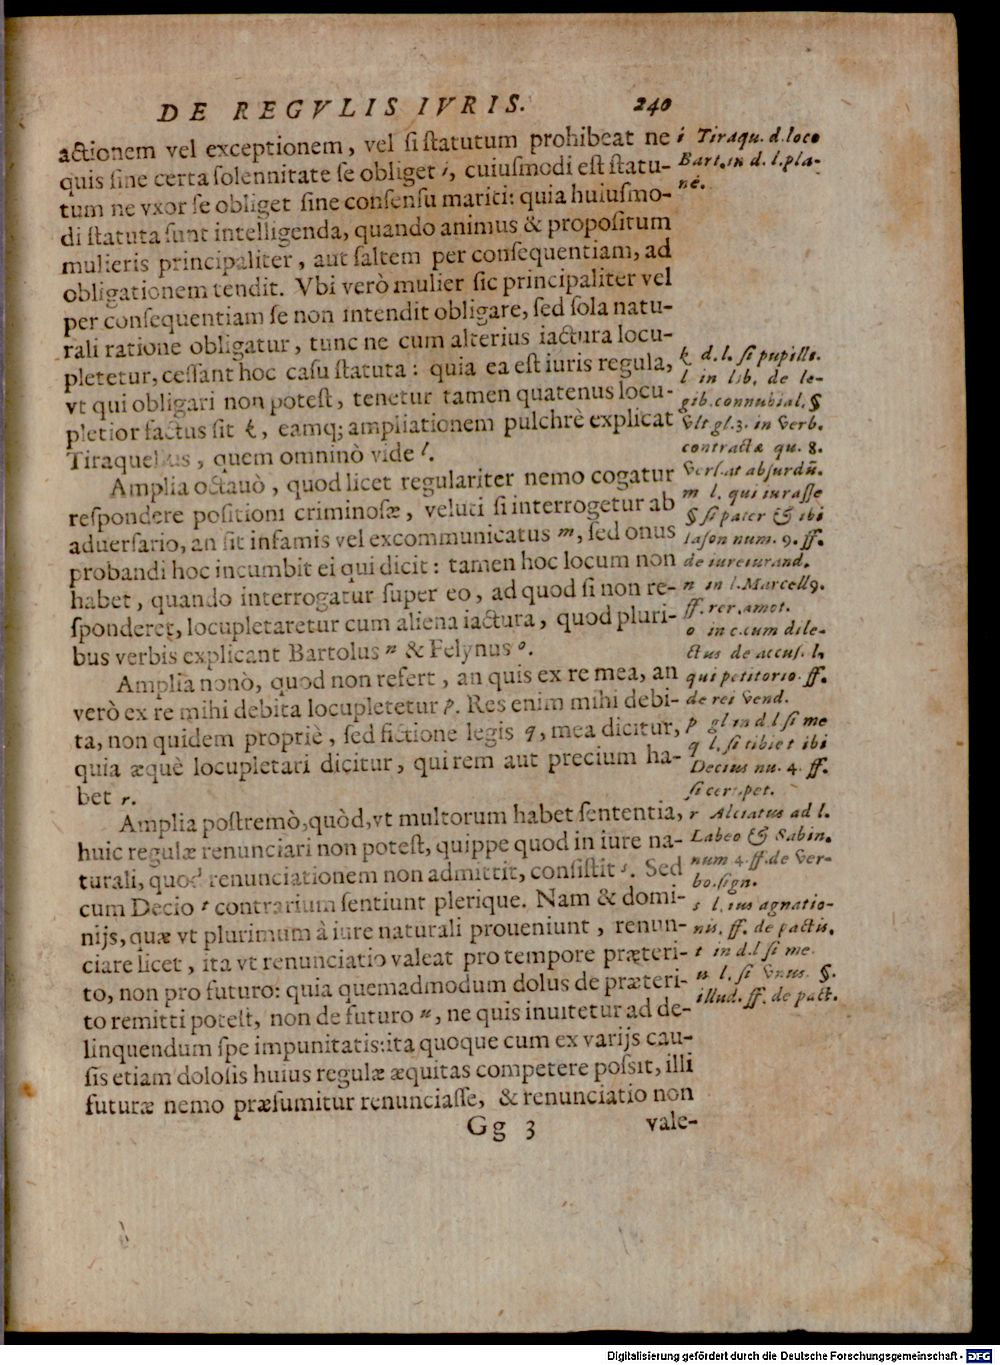 DE REGVLIS IVRIS. 240
actionem vel exceptionem, vel si statutum prohibeat ne
quis sine certa solennitate se obliget i, cuiusmodi est statu-
tum ne vxor se obliget sine consensu mariti: quia huiusmo-
di statuta sunt intelligenda, quando animus & propositum
mulieris principaliter, aut saltem per consequentiam, ad
obligationem tendit. Vbi verò mulier sic principaliter vel
per consequentiam se non intendit obligare, sed sola natu-
rali ratione obligatur, tunc ne cum alterius iactura locu-
pletetur, cessant hoc casu statuta: quia ea est iuris regula,
vt qui obligari non potest, tenetur tamen quatenus locu-
pletior factus sit k, eamq; ampliationem pulchrè explicat
Tiraquellus, quem omninò vide l.
Amplia octauò, quod licet regulariter nemo cogatur
respondere positioni criminosæ, veluti si interrogetur ab
aduersario, an sit infamis vel excommunicatus m, sed onus
probandi hoc incumbit ei qui dicit: tamen hoc locum non
habet, quando interrogatur super eo, ad quod si non re-
sponderet, locupletaretur cum aliena iactura, quod pluri-
bus verbis explicant Bartolus n & Felynus o.
Amplia nonò, quod non refert, an quis ex re mea, an
verò ex re mihi debita locupletetur p. Res enim mihi debi-
ta, non quidem propriè, sed fictione legis q, mea dicitur,
quia æquè locupletari dicitur, qui rem aut precium ha-
bet r.
Amplia postremò, quòd, vt multorum habet sententia,
huic regulæ renunciari non potest, quippe quod in iure na-
turali, quod renunciationem non admittit, consistit s. Sed
cum Decio t contrarium sentiunt plerique. Nam & domi-
nijs, quæ vt plurimum à iure naturali proueniunt, renun-
ciare licet, ita vt renunciatio valeat pro tempore præteri-
to, non pro futuro: quia quemadmodum dolus de præteri-
to remitti potest, non de futuro u, ne quis inuitetur ad de-
linquendum spe impunitatis: ita quoque cum ex varijs cau-
sis etiam dolosis huius regulæ æquitas competere possit, illi
futuræ nemo præsumitur renunciasse, & renunciatio non
Gg 3 vale-
i Tiraqu. d. loco
Bart. in d. l. pla-
nè.
k d. l. si pupillo.
l in lib. de le-
gib. connubial. §
vlt gl. 3. in verb.
contractæ qu. 8.
vers. at absurdū.
m l. qui iurasse
§ si pater & ibi
Iason num. 9. ff.
de iureiurand.
n in l. Marcell9.
ff. rer. amot.
o in c. cum dile-
ctus de accus. l.
qui petitorio. ff.
de rei vend.
p gl in d. l si me
q l. si tibi et ibi
Decius nu. 4. ff.
si cer. pet.
r Alciatus ad l.
Labeo & Sabin.
num 4. ff. de ver-
bo. sign.
s l. ius agnatio-
nis. ff. de pactis.
t in d. l si me.
u l. si vnus. §.
illud. ff. de pact.
Digitalisierung gefördert durch die Deutsche Forschungsgemeinschaft - DFG